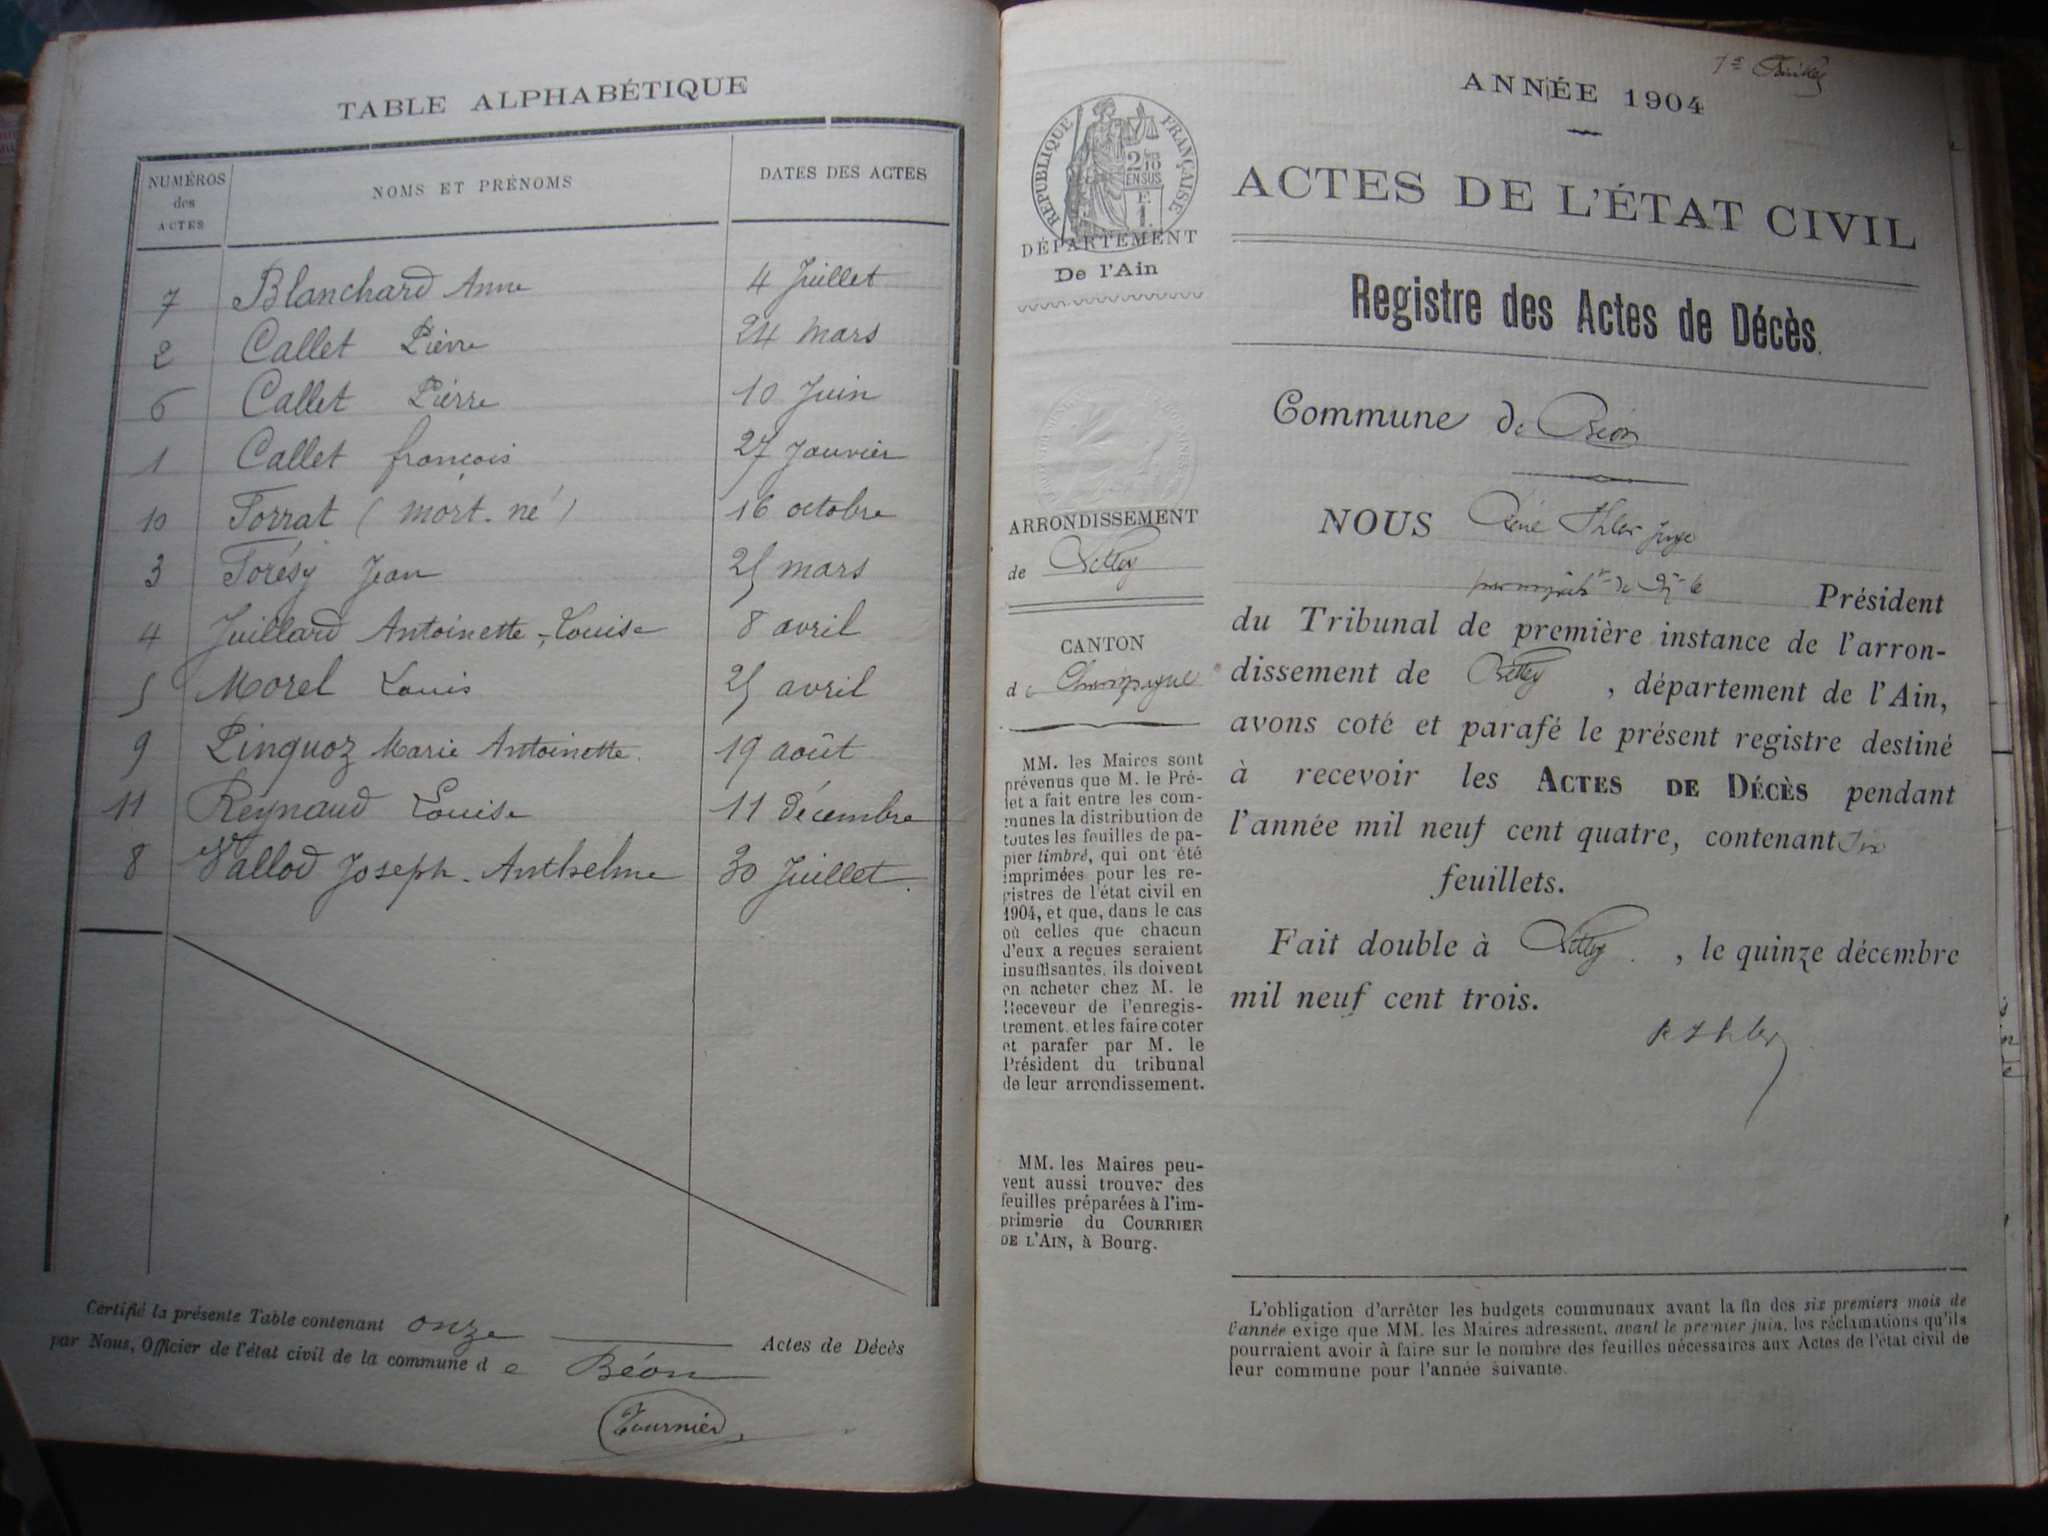 TABLE ALPHABÉTIQUE
NUMÉROS des ACTES
NOMS ET PRÉNOMS
DATES DES ACTES
7 Blanchard Anne 4 Juillet
2 Callet Pierre 24 mars
6 Callet Pierre 10 Juin
1 Callet françois 27 Janvier
10 Forrat (mort-né) 16 octobre
3 Forésy Jean 25 mars
4 Juillard Antoinette-Louise 8 avril
5 Morel Louis 25 avril
9 Pinguoz Marie Antoinette 19 août
11 Reynaud Louise 11 décembre
8 Vallod Joseph-Anthelme 30 Juillet.
Certifié la présente Table contenant onze Actes de Décès
par Nous, Officier de l'état civil de la commune de Béon
Tournier
ANNÉE 1904
RÉPUBLIQUE FRANÇAISE
2/10 EN SUS
F. 1.
DÉPARTEMENT
De l'Ain
ARRONDISSEMENT
de Belley
CANTON
de Champagne
MM. les Maires sont
prévenus que M. le Pré-
fet a fait entre les com-
munes la distribution de
toutes les feuilles de pa-
pier timbré, qui ont été
imprimées pour les re-
gistres de l'état civil en
1904, et que, dans le cas
où celles que chacun
d'eux a reçues seraient
insuffisantes, ils doivent
en acheter chez M. le
Receveur de l'enregis-
trement, et les faire coter
et parafer par M. le
Président du tribunal
de leur arrondissement.
MM. les Maires peu-
vent aussi trouver des
feuilles préparées à l'im-
primerie du COURRIER
DE L'AIN, à Bourg.
ACTES DE L'ÉTAT CIVIL
Registre des Actes de Décès.
Commune de Béon
NOUS René Ihler juge
Président
du Tribunal de première instance de l'arron-
dissement de Belley, département de l'Ain,
avons coté et parafé le présent registre destiné
à recevoir les ACTES DE DÉCÈS pendant
l'année mil neuf cent quatre, contenant six
feuillets.
Fait double à Belley, le quinze décembre
mil neuf cent trois.
R Ihler
L'obligation d'arrêter les budgets communaux avant la fin des six premiers mois de
l'année exige que MM. les Maires adressent, avant le premier juin, les réclamations qu'ils
pourraient avoir à faire sur le nombre des feuilles nécessaires aux Actes de l'état civil de
leur commune pour l'année suivante.